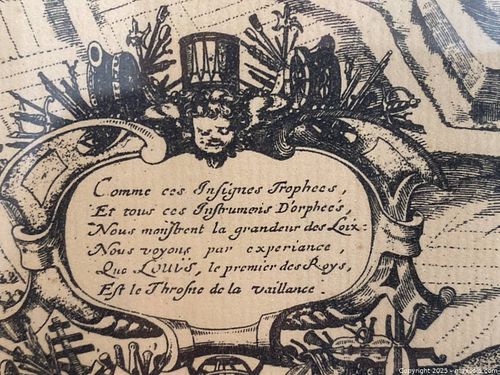 Comme ces Insignes Trophees,
Et tous ces Instrumens D'orphees,
Nous monstrent la grandeur des Loix:
Nous voyons par experiance,
Que LOUIS, le premier des Roys,
Est le Throsne de la vaillance
Copyright 2025 -